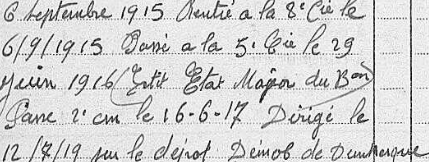 6 Septembre 1915 Rentré a la 8e Cie le
6/9/1915 Passé a la 5e Cie le 29
Juin 1916 (Petit Etat Major du Bon)
Passe 2e cm le 16-6-17 Dirigé le
12/7/19 sur le dépot Démob de Dunkerque